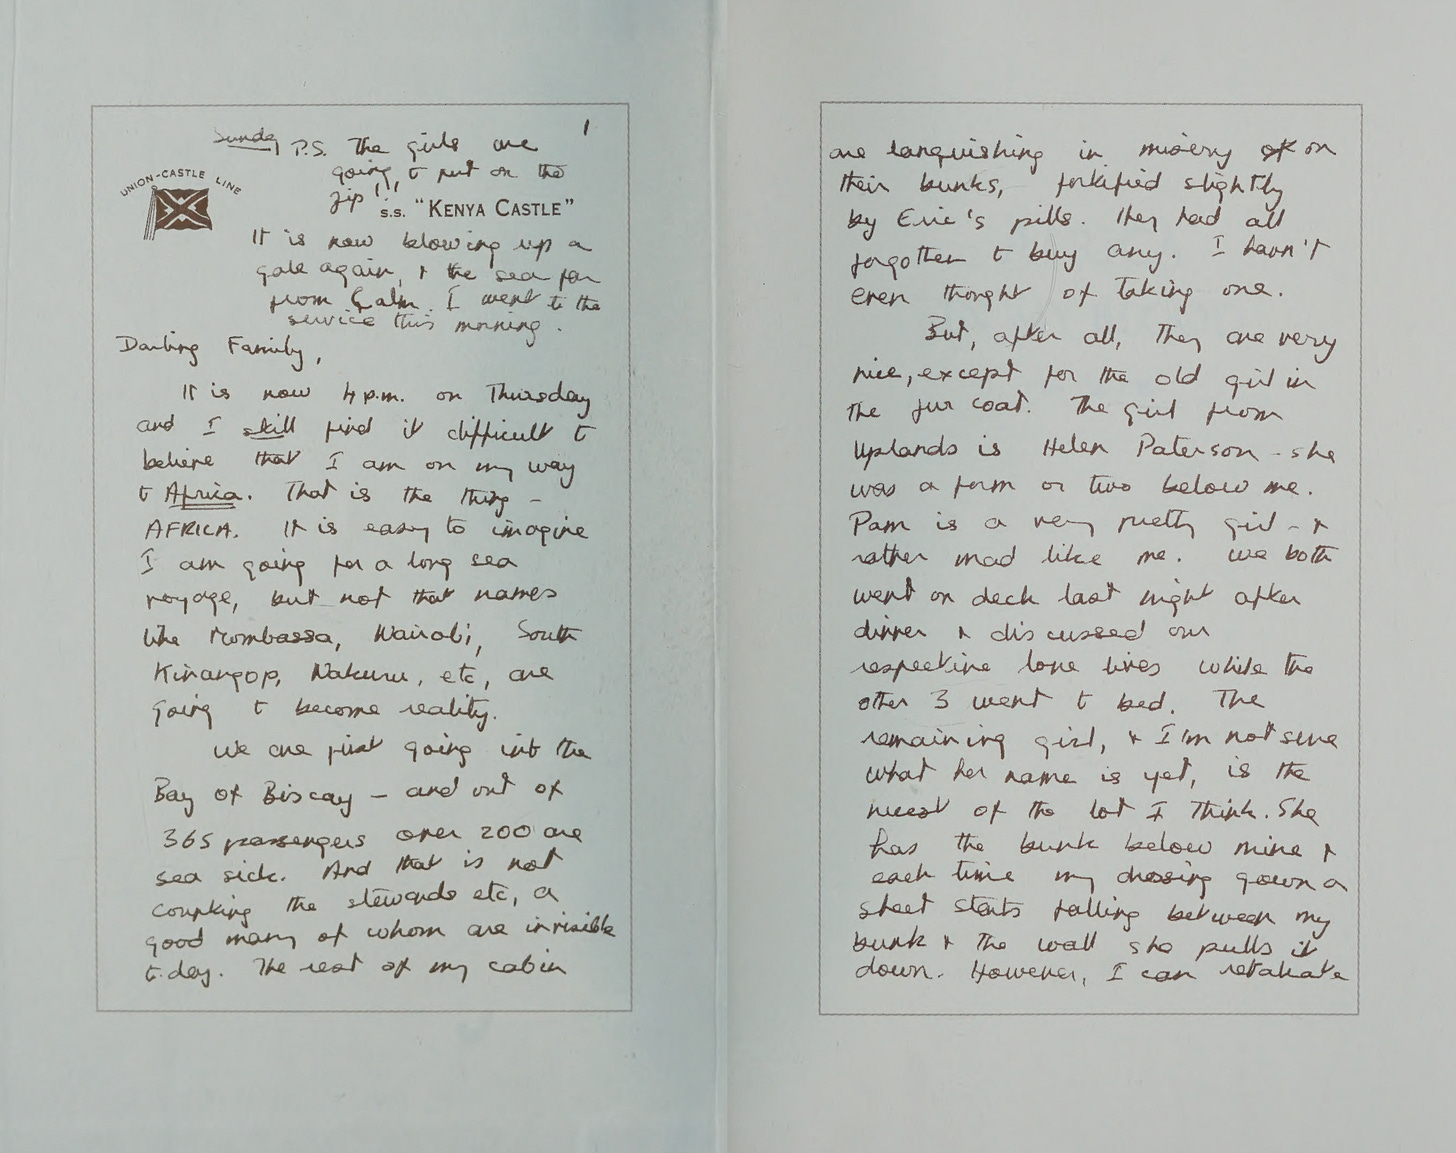 Sunday P.S. The girls are
1
going t put on the
zip!!!
UNION-CASTLE LINE
s.s. "KENYA CASTLE"
It is now blowing up a
gale again, & the sea far
from Calm. I went to the
service this morning.
Darling Family,
It is now 4 p.m. on Thursday
and I still find it difficult t
believe that I am on my way
t Africa. That is the thing -
AFRICA. It is easy to imagine
I am going for a long sea
voyage, but not that names
like Mombassa, Nairobi, South
Kinangop, Nakuru, etc, are
going t become reality.
We are just going into the
Bay of Biscay - and out of
365 passengers over 200 are
sea sick. And that is not
counting the stewards etc, a
good many of whom are invisible
t.day. The rest of my cabin
are languishing in misery on
their bunks, fortified slightly
by Eric's pills. They had all
forgotten t buy any. I havn't
even thought of taking one.
But, after all, they are very
nice, except for the old girl in
the fur coat. The girl from
Uplands is Helen Paterson - she
was a form or two below me.
Pam is a very pretty girl - &
rather mad like me. We both
went on deck last night after
dinner & discussed our
respective love lives while the
other 3 went t bed. The
remaining girl, & I'm not sure
what her name is yet, is the
nicest of the lot I think. She
has the bunk below mine &
each time my dressing gown or
sheet starts falling between my
bunk & the wall she pulls it
down. However, I can retaliate